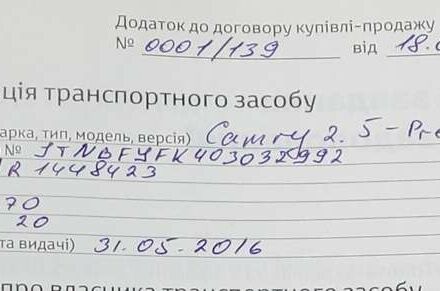 Додаток до договору купівлі-продажу
№ 0001/139 від 18.
ція транспортного засобу
арка, тип, модель, версія) Camry 2.5-Pre
№ JTNBF4FK403032992
R 1448423
70
20
та видачі) 31.05-2016
про власника транспортного засобу